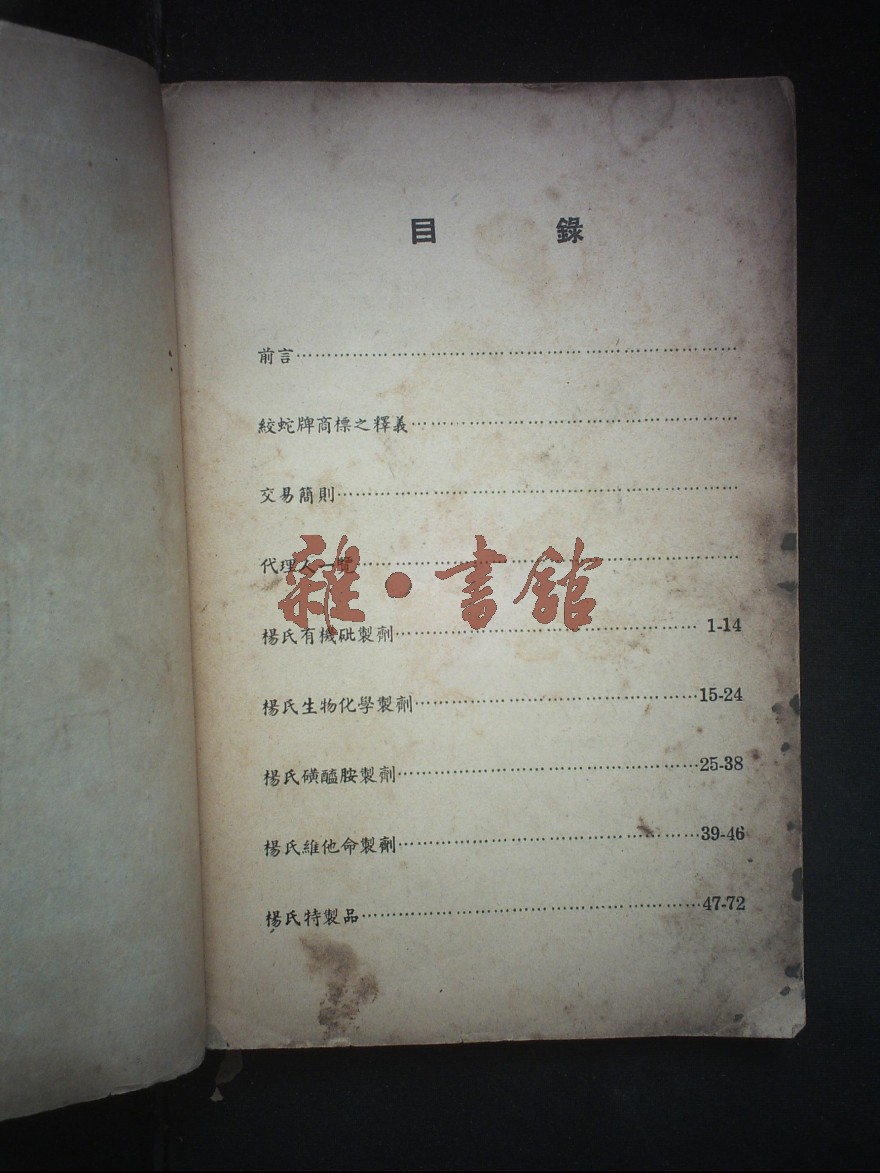 目錄
前言………………………………………………………………
絞蛇牌商標之釋義………………………………………………
交易簡則…………………………………………………………
代理人一覽………………………………………………………
雜·書館
楊氏有機砒製劑………………………………………… 1-14
楊氏生物化學製劑………………………………………15-24
楊氏磺醯胺製劑…………………………………………25-38
楊氏維他命製劑…………………………………………39-46
楊氏特製品………………………………………………47-72